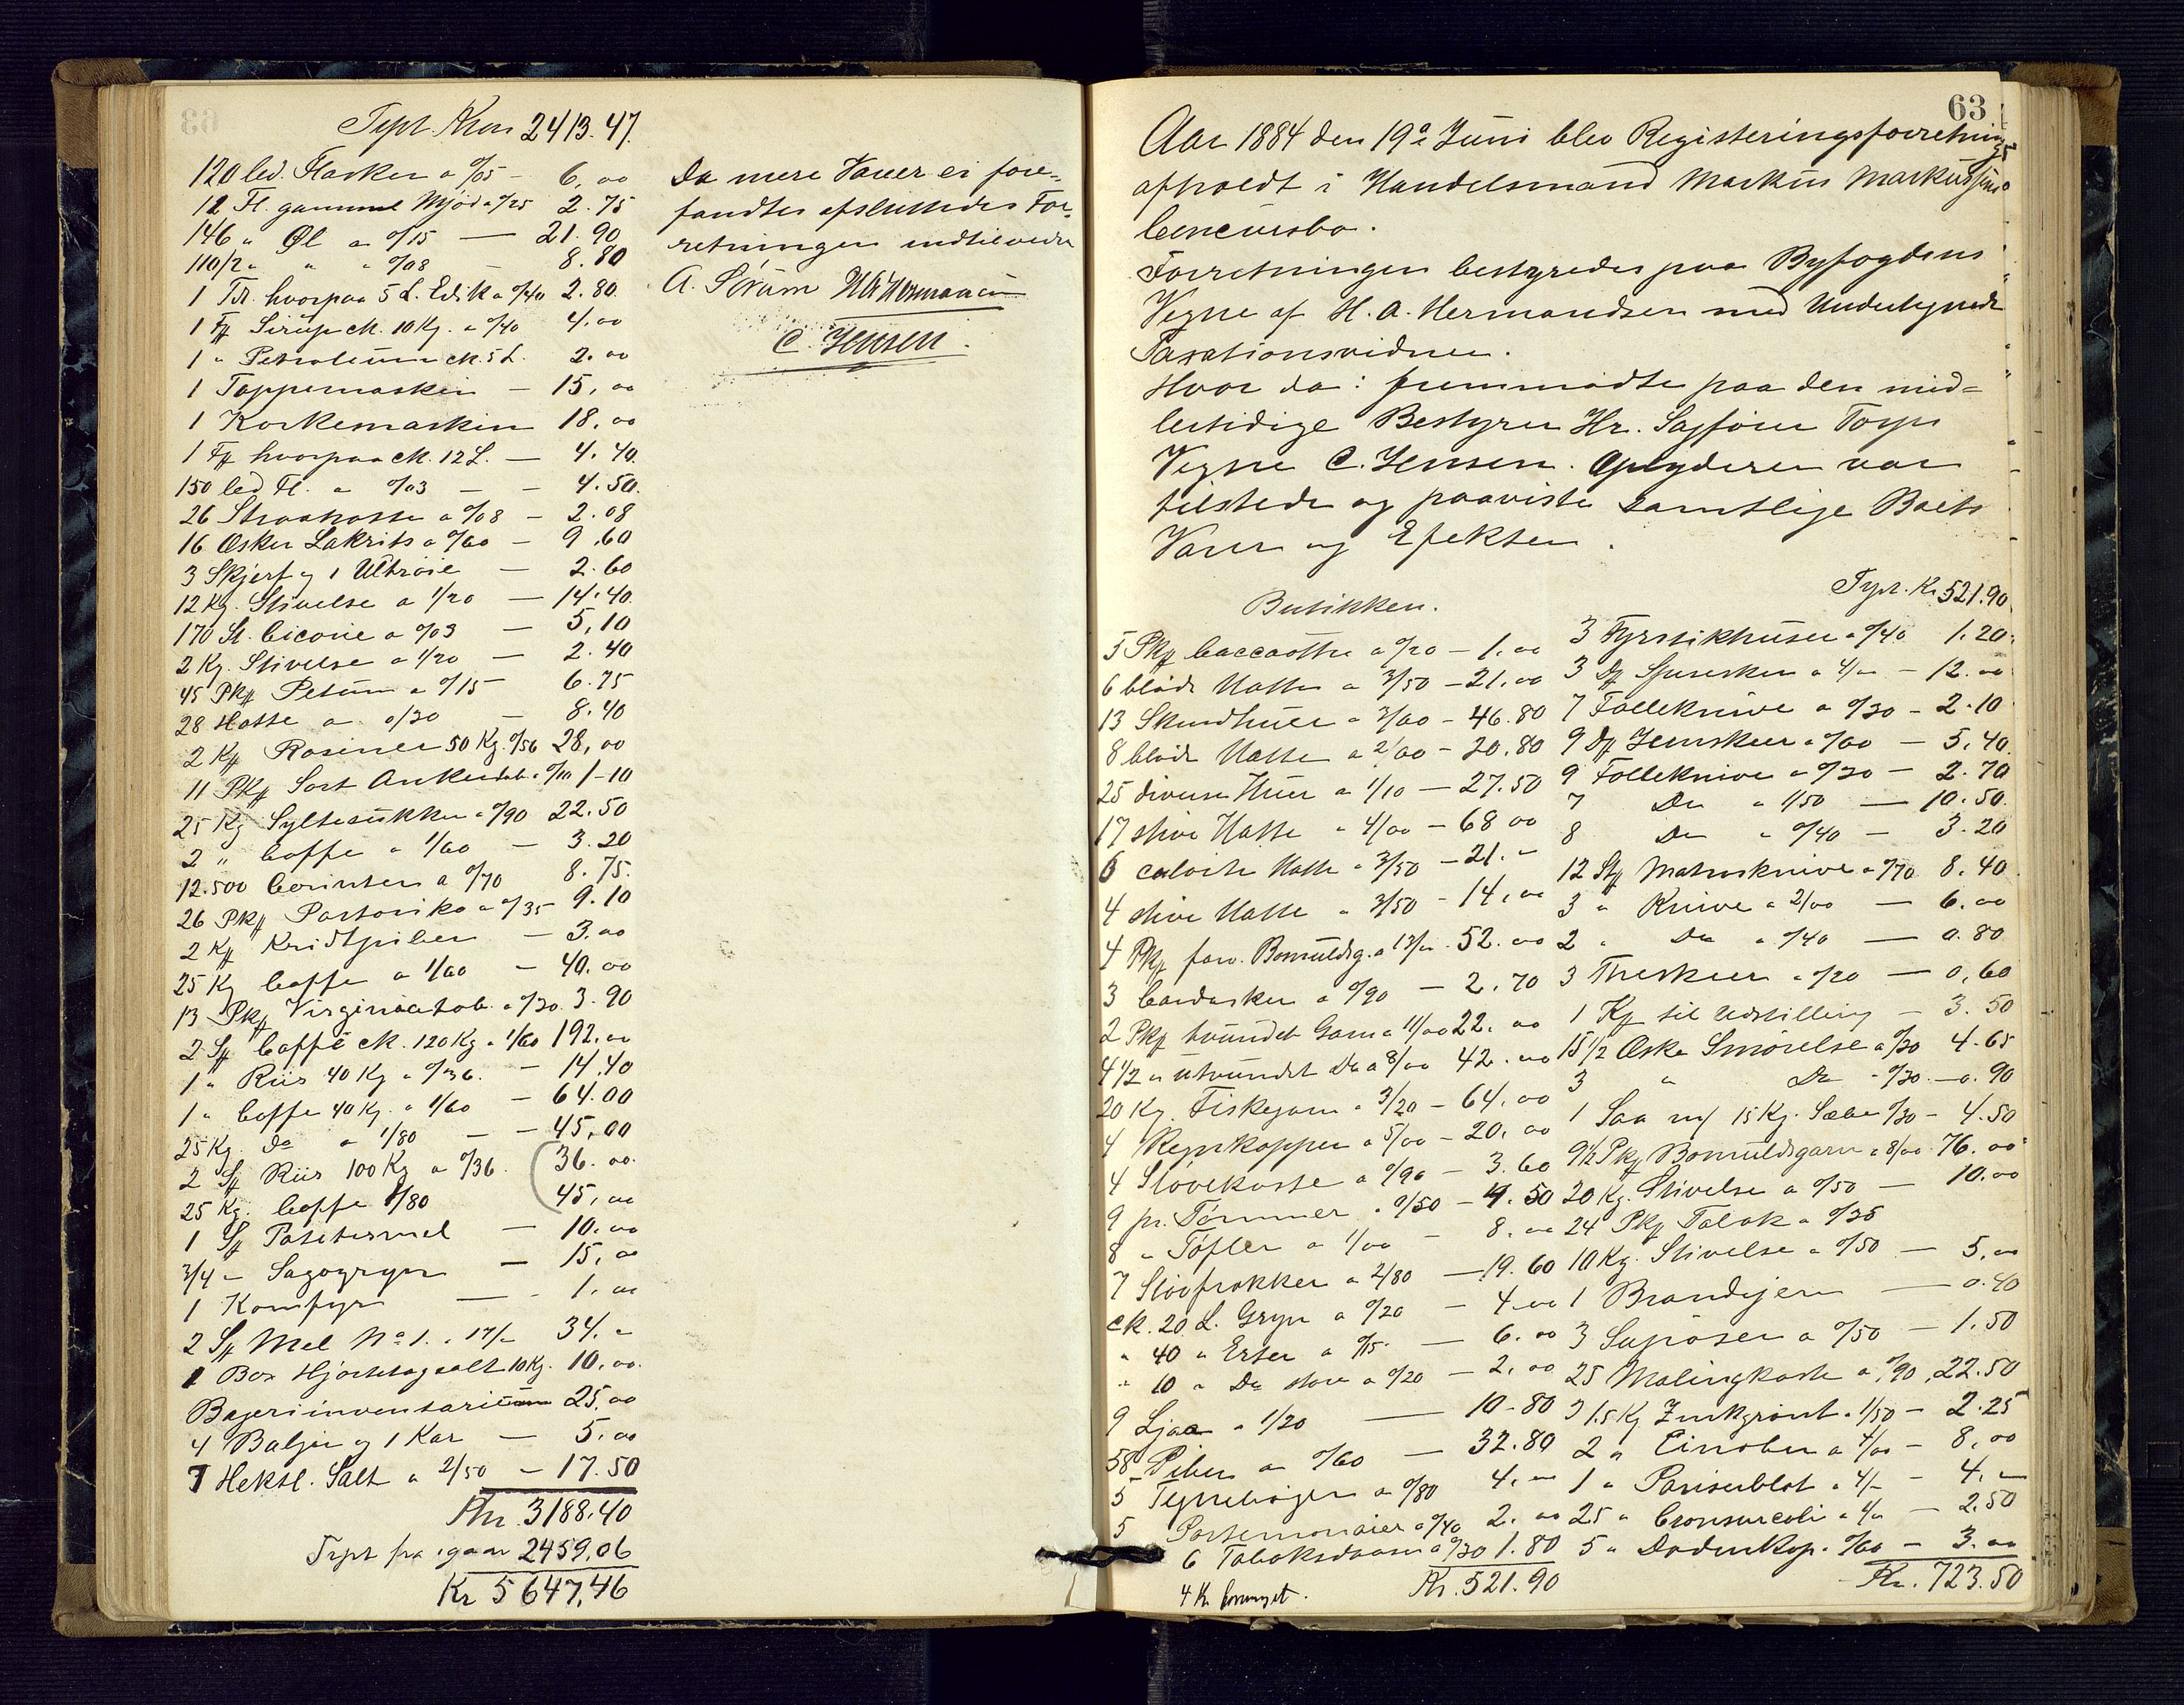 Tspt. Kron 2413.47.
120 led. Flasker a 0/05 - 6,00
12 Fl. gammel Mjød a 0/25 2.75
146 " Øl a 0/15 — 21.90
110/2 " " " 0/08 - 8.80
1 Td. hvorpaa 5 L. Edik a 0/40 2.80.
1 Fj Sirup ck. 10 Kg. a 0/40 4.00
1 " Petroleum ck. 5 L. 2.00
1 Tappemaskin — 15,00
1 Korkemaskin 18,00
1 Fj hvorpaa ck. 12 L. — 4.40.
150 led Fl. a 0/03 — - 4.50.
26 Straakoste a 0/08 - 2.08
16 Æsker Lakrits a 0/60 - 9.60
3 Skjerf og 1 Uldtrøie — 2.60
12 Kg. Stivelse a 1/20 — 14.40.
170 St. Cicorie a 0/03 — 5,10
2 Kg. Stivelse a 1/20 — 2.40
45 Pkj Petum a 0/15 - 6.75
28 Hatte a 0/30 - 8.40
2 Kj Rosiner 50 Kg. 0/56 28,00
11 Pkj Sort Ankertob. a 0/10 1-10
25 Kg Syltesukker a 0/90 22.50
2 " Coffe a 1/60 - 3.20
12.500 Corinter a 0/70 8.75.
26 Pkj Portoriko a 0/35 9.10
2 Kj Kridtpiber - 3.00
25 Kg Coffe a 1/60 - 40.00
13 Pkj Virginiatob. a 0/30. 3.90
2 Sj Coffe ck. 120 Kg a 1/60 192.00
1 " Riis 40 Kg a 0/36. - 14.40
1 " Coffe 40 Kg. a 1/60 - 64.00
25 Kg. Do a 1/80 — - 45,00
2 Sj Riis 100 Kg a 0/36. 36.00.
25 Kg. Coffe 1/80 45,00
1 Sj Potetesmel — 10.00
3/4 " Sagogryn — 15,00
1 Komfyr — 1.00
2 Sj Mel No 1. a 17/- 34.-
1 Box Hjortetagsalt 10 Kg. 10,00.
Bageriinventarium 25,00
4 Baljer og 1 Kar — 5.00
7 Hektl. Salt a 2/50 - 17.50
Kr. 3188.40
Trpt fra igaar 2459,06
Kr 5647,46
Da mere Varer ei fore-
fandtes afsluttedes For-
retningen indtilvidre
A. Sörum HAHermansen
C. Jensen.
63
Aar 1884 den 19de Juni blev Registeringsforretning
afholdt i Handelsmand Markus Markussens
Concursbo.
Forretningen bestyredes paa Byfogdens
Vegne af H. A. Hermandsen med Undertegnede
Taxationsvidner.
Hvor da: fremmødte paa den mid-
lertidige Bestyrer Hr. Sagfører Torps
Vegne C. Jensen. Opbyderen var
tilstede og paaviste samtlige Boets
Varer og Efekter.
Butikken.
5 Pkj Caccaothe a 0/20 - 1.00
6 bløde Hatte a 3/50 - 21.00
13 Skindhuer a 3/60 - 46.80
8 bløde Hatte a 2/60 - 20.80
25 diverse Huer a 1/10 - 27.50
17 stive Hatte a 4/00 - 68 00
6 calorte Hatte a 3/50 - 21.-
4 stive Hatte a 3/50 - 14,00
4 Pkj farv. Bomuldsg. a 13/- 52.00
3 Cardusker a 0/90 - 2.70
2 Pkj tvundet Garn a 11/00 22.00
4 1/2 " utvundet Do a 8/00 42.00
20 Kg. Fiskegarn a 3/20 - 64.00
4 Regnkapper a 5/00 - 20,00
4 Støvekoste a 0/90 - 3.60
9 pr. Tømmer a 0/50 - 4.50
8 " Tøfler a 1/00 - 8.00
7 Støvfrakker a 2/80 — 19.60
ck. 20 L. Gryn a 0/20 - 4.00
" 40 " Erter a 0/15. - 6.00
" 10 " Do store a 0/20 - 2,00
9 Ljaa a 1/20 — 10-80
58 Piber a 0/60 — 32.80
5 Tegnebøger a 0/80 4.00
5 Portemonaier a 0/40 2.00
6 Tobaksdaaser a 0/30 1.80
Kr. 521.90
Tspt. Kr. 521.90
3 Fyrstikhuser a 0/40 1.20.
3 Dj Spiseskeer a 4/00 - 12.00
7 Folleknive a 0/30 - 2.10
9 Dj Jernskeer a 0/60 - 5.40.
9 Folleknive a 0/30 - 2.70
7 Do a 1/50 — 10.50.
8 Do a 0/40 - 3.20
12 Stj Matrosknive a 0/70 8.40
3 " Knive a 2/00 - 6.00
2 " Do a 0/40 — 0.80
3 Theskeer a 0/20 — 0,60
1 Kj til Udstilling - 3.50
15 1/2 Æske Smørelse a 0/30 4.65
3 " Do a 0/30 - 0.90
1 Saa m/ 15 Kg. Sæbe 0/30 - 4.50
9 1/2 Pkj Bomuldsgarn a 8/00 76.00
20 Kg. Stivelse a 0/50 — 10.00
24 Pkj Tobak a 0/35
10 Kg. Stivelse a 0/50 — 5.00
1 Brandjern — 0.40
3 a 0/50 - 1.50
25 Malingkoste a 0/90 22.50
1.5 Kg Zinkgrønt a 1/50 - 2.25
2 " Cinober a 4/00 - 8,00
1 " Pariserblot a 4/- - 4.-
25 " a 4/- - 2.50
5 " Dødenkop a 0/60 - 3.00
Kr. 723.50